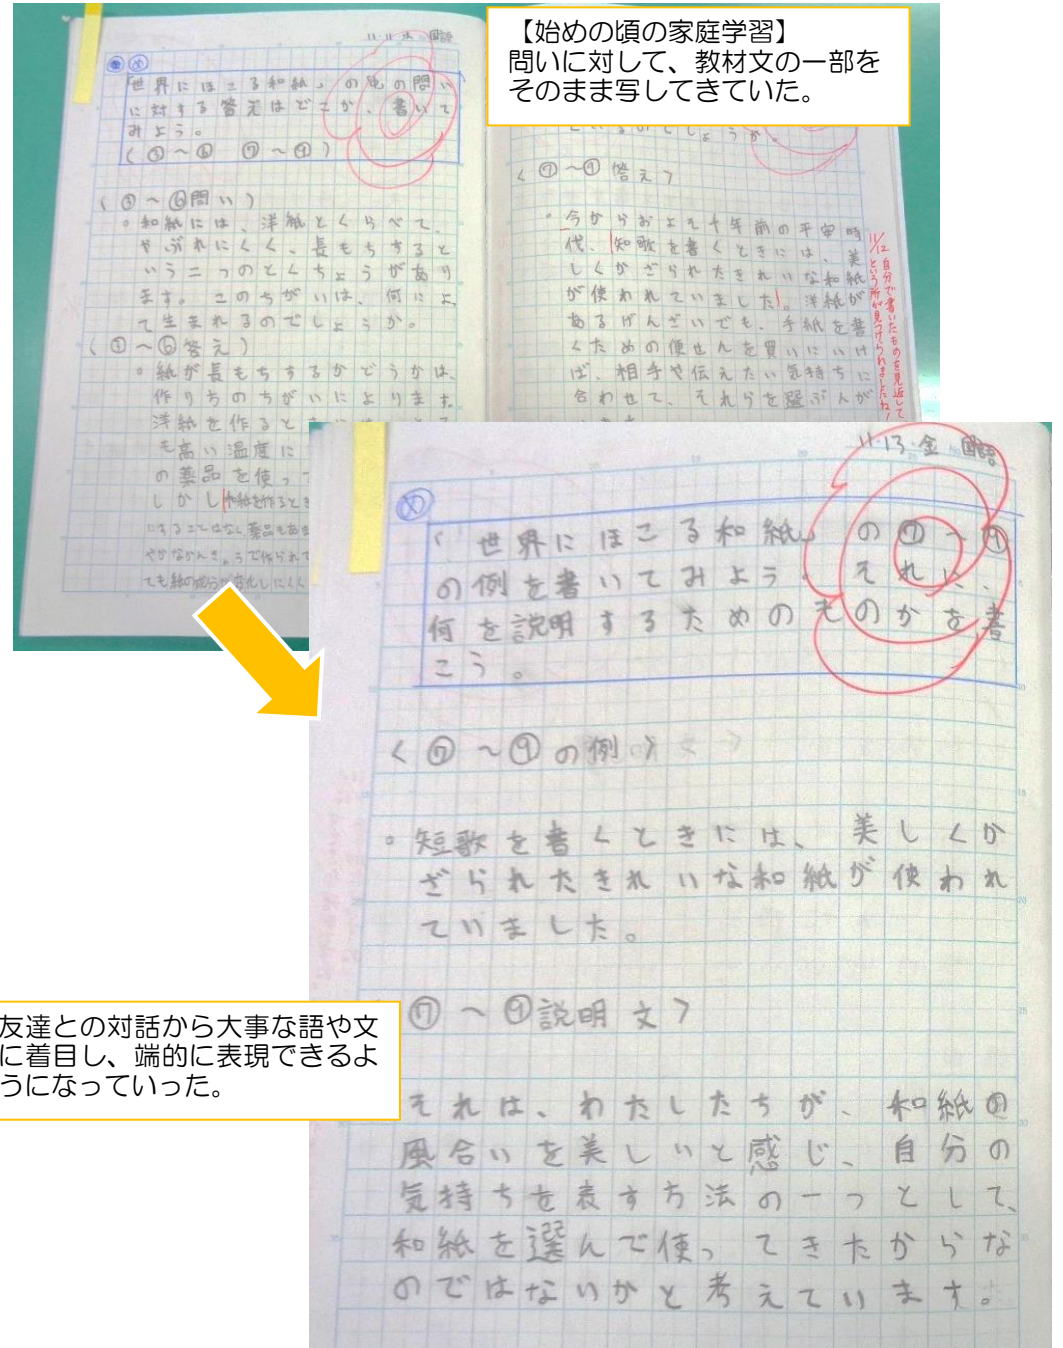 【始めの頃の家庭学習】
問いに対して、教材文の一部を
そのまま写してきていた。
11.11 水 国語
め
「世界にほこる和紙」の他の問い
に対する答えはどこか、書いて
みよう。
(③～⑥ ⑦～⑨)
(③～⑥問い)
。和紙には、洋紙とくらべて、
やぶれにくく、長もちすると
いう二つのとくちょうがあり
ます。このちがいは、何によ
て生まれるのでしょうか。
(③～⑥答え)
。紙が長もちするかどうかは、
作り方のちがいによります。
洋紙を作るとき
も高い温度に
の薬品を使って
しかし和紙を作るとき
にすることはなく、薬品もあま
ても紙の成分が変化しにくく
ているのでしょうか。
〈⑦～⑨答え〉
。今からおよそ千年前の平安時
代、短歌を書くときには、美
しくかざられたきれいな和紙
が使われていました。洋紙が
あるげんざいでも、手紙を書
くための便せんを買いにいけ
ば、相手や伝えたい気持ちに
合わせて、それらを選ぶ人が
11/12 自分で書いたものを見返して
という所が見つけられましたね！
11.13.金 国語
め
「世界にほこる和紙」の⑦～⑨
の例を書いてみよう。それに、
何を説明するためのものかを書
こう。
〈⑦～⑨の例〉
。短歌を書くときには、美しくか
ざられたきれいな和紙が使われ
ていました。
⑦～⑨説明文〉
それは、わたしたちが、和紙の
風合いを美しいと感じ、自分の
気持ちを表す方法の一つとして、
和紙を選んで使ってきたからな
のではないかと考えています。
友達との対話から大事な語や文
に着目し、端的に表現できるよ
うになっていった。